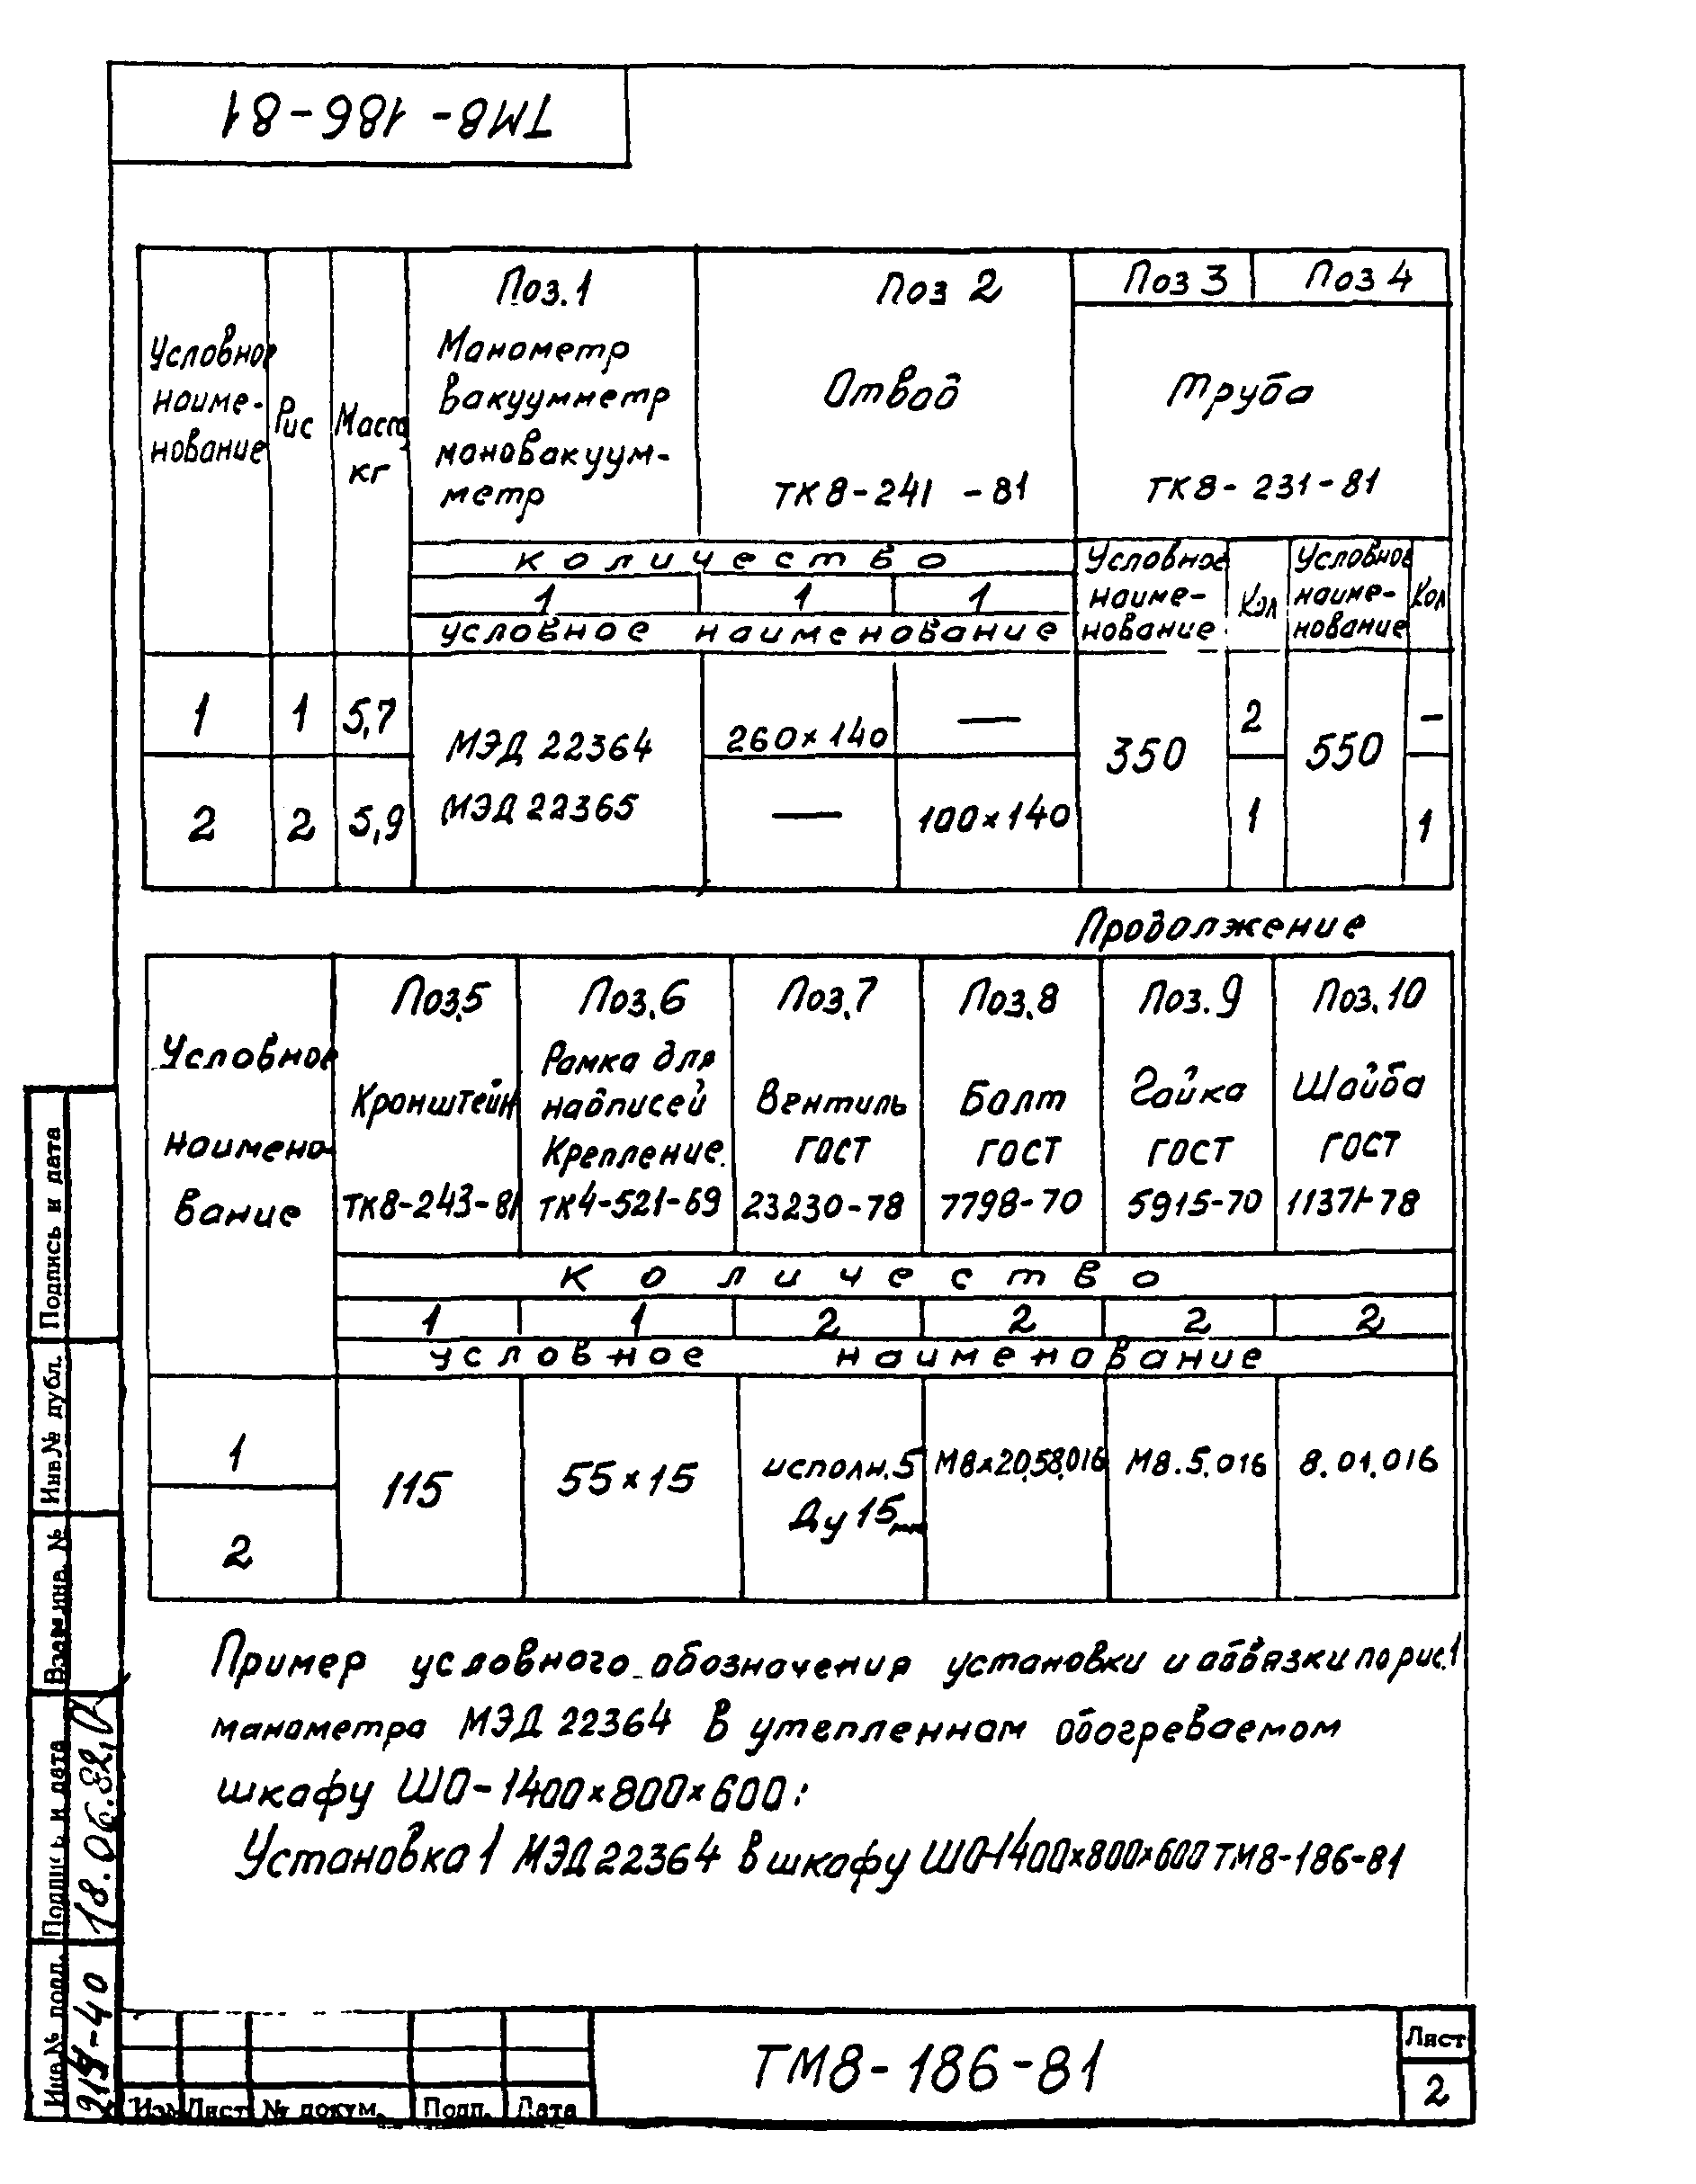 ТМ8-186-81
Поз.1 Поз 2 Поз 3 Поз 4
Условное
наиме-
нование
Рис
Масса
кг
Манометр
вакуумметр
мановакуум-
метр
Отвод
ТК8-241 -81
Труба
ТК8-231-81
количество
1 1 1
условное наименование
Условное
наиме-
нование
Кол
Условное
наиме-
нование
Кол
1 1 5,7 МЭД 22364 260×140 — 350 2 550 -
2 2 5,9 МЭД 22365 — 100×140 1 1
Продолжение
Условное
наимено-
вание
Поз.5
Кронштейн
ТК8-243-81
Поз.6
Рамка для
надписей
Крепление.
ТК4-521-69
Поз.7
Вентиль
ГОСТ
23230-78
Поз.8
Болт
ГОСТ
7798-70
Поз.9
Гайка
ГОСТ
5915-70
Поз.10
Шайба
ГОСТ
11371-78
количество
1 1 2 2 2 2
условное наименование
1
2
115
55×15
исполн.5
Ду 15мм
М8×20.58.016
М8.5.016
8.01.016
Пример условного обозначения установки и обвязки по рис.1
манометра МЭД 22364 в утепленном обогреваемом
шкафу ШО-1400×800×600:
Установка 1 МЭД 22364 в шкафу ШО-1400×800×600 ТМ8-186-81
Подпись и дата
Инв.№ дубл.
Взам.инв. №
Подпись и дата
18.06.82
Инв.№ подл.
Изм Лист № докум. Подп. Дата
ТМ8-186-81
Лист
2